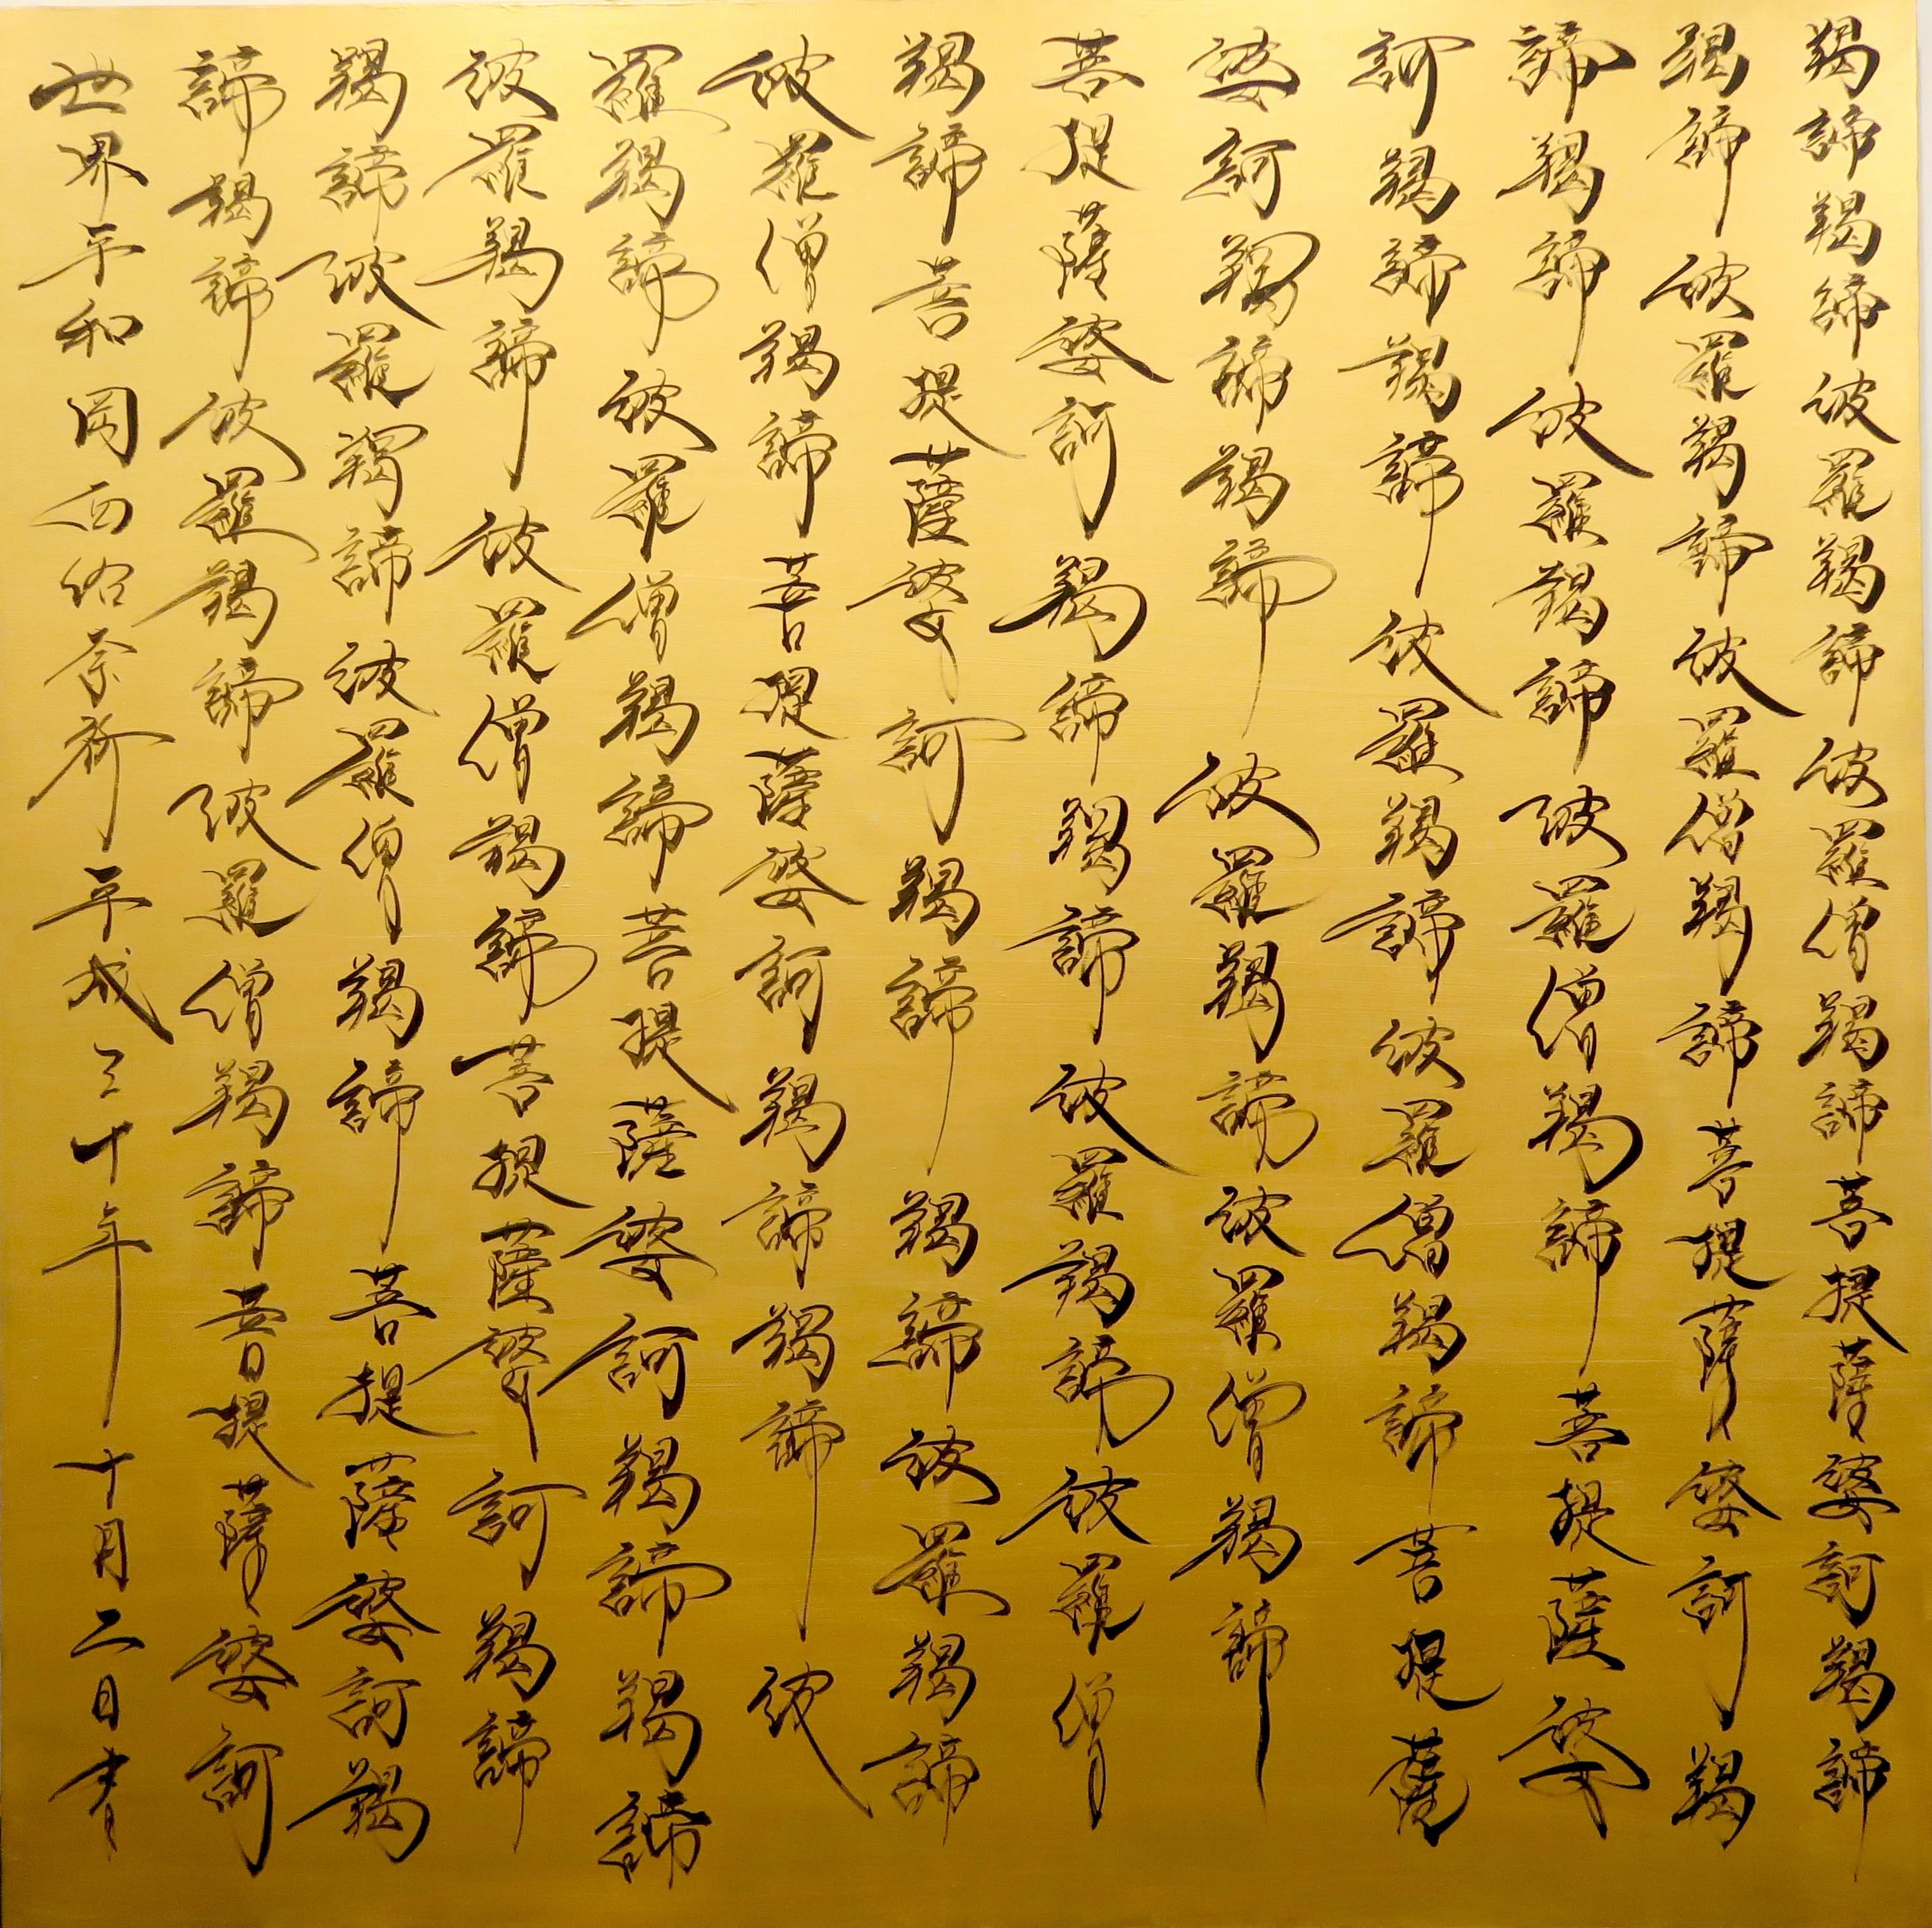 羯諦羯諦波羅羯諦波羅僧羯諦菩提薩婆訶羯諦
羯諦波羅羯諦波羅僧羯諦菩提薩婆訶羯
諦羯諦波羅羯諦波羅僧羯諦菩提薩婆
訶羯諦羯諦波羅羯諦波羅僧羯諦菩提薩
婆訶羯諦羯諦波羅羯諦波羅僧羯諦
菩提薩婆訶羯諦羯諦波羅羯諦波羅僧
羯諦菩提薩婆訶羯諦羯諦波羅羯諦
波羅僧羯諦菩提薩婆訶羯諦羯諦波
羅羯諦波羅僧羯諦菩提薩婆訶羯諦羯諦
波羅羯諦波羅僧羯諦菩提薩婆訶羯諦
羯諦波羅羯諦波羅僧羯諦菩提薩婆訶羯
諦羯諦波羅羯諦波羅僧羯諦菩提薩婆訶
世界平和岡西佑奈祈平成三十年十月二日書